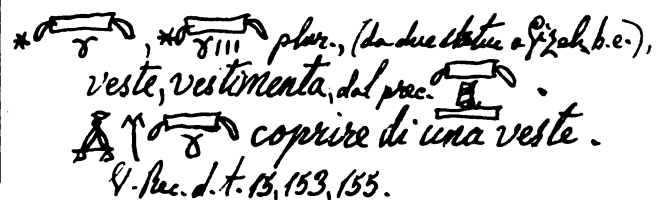 * , * plur., (da due statue a Gizeh, b.e.),
veste, vestimenta, dal prec. .
coprire di una veste.
V. Rec. d. t. 15, 153, 155.